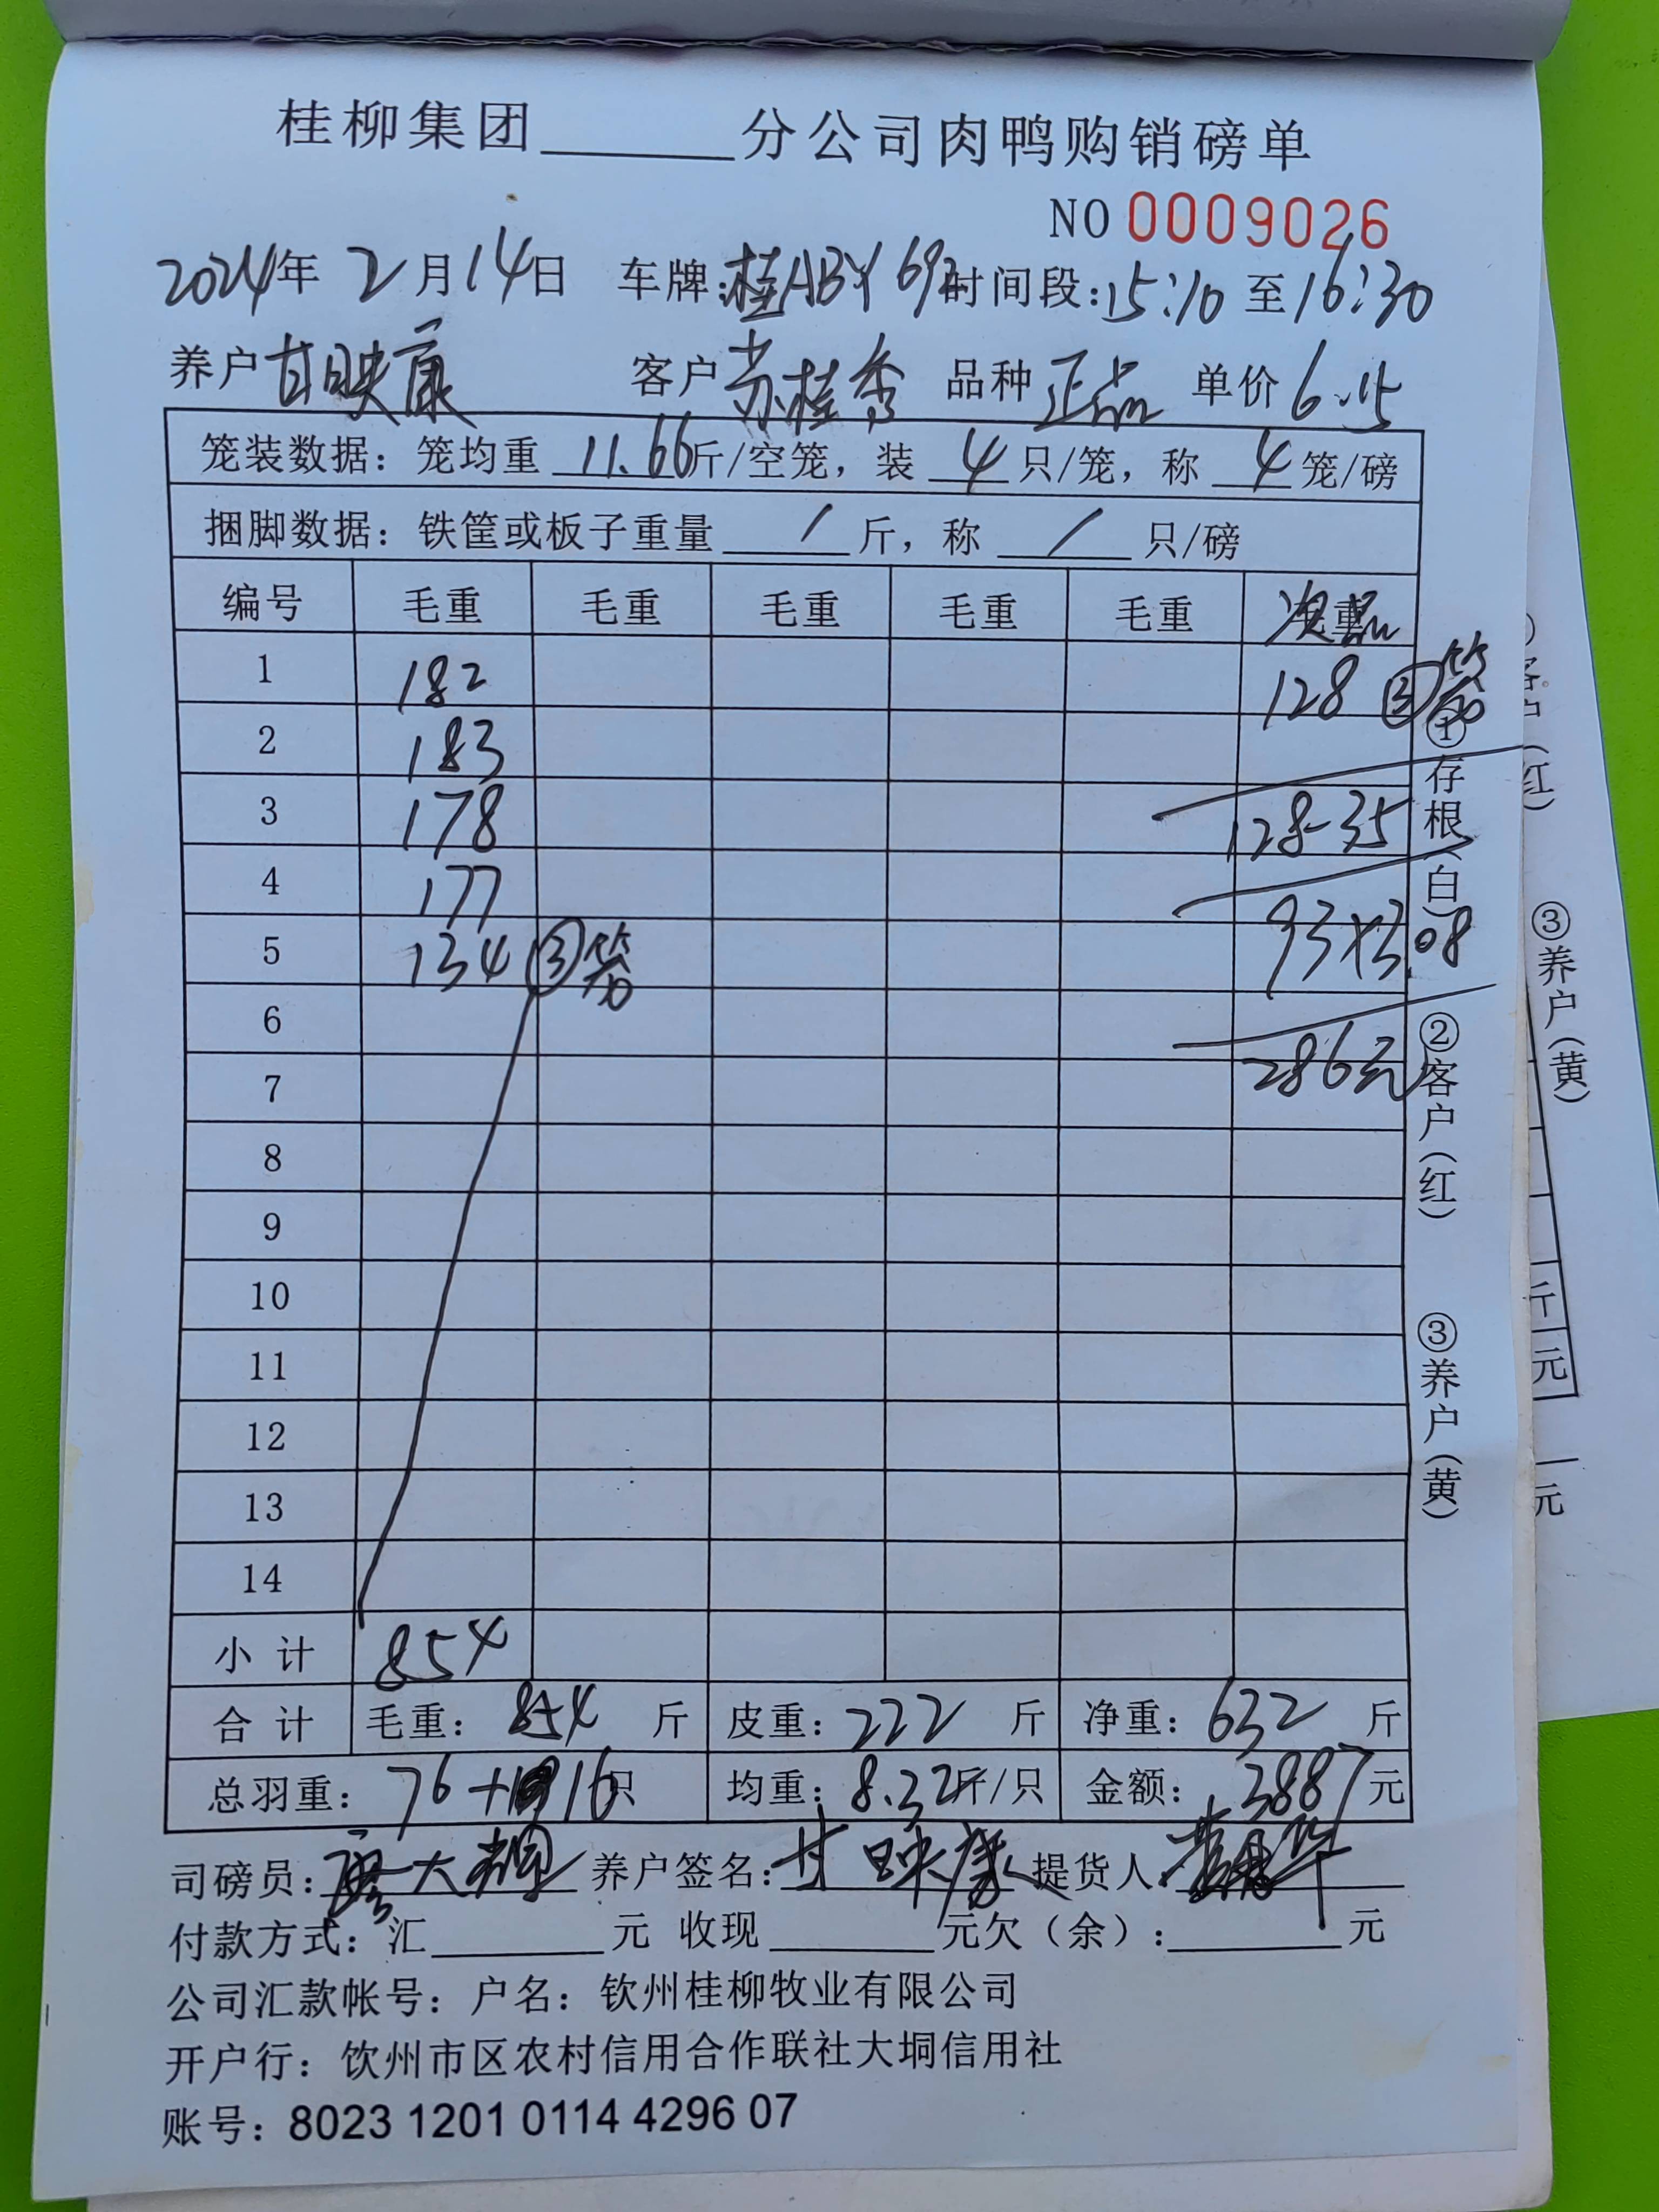 桂柳集团______分公司肉鸭购销磅单
NO 0009026
2024年 2月14日 车牌:桂ABY692 时间段:15:10 至16:30
养户 甘映康 客户 苏桂秀 品种 正品 单价 6.15
笼装数据：笼均重 11.66 斤/空笼，装 4 只/笼，称 4 笼/磅
捆脚数据：铁筐或板子重量 / 斤，称 / 只/磅
编号 毛重 毛重 毛重 毛重 毛重 次品
1 182 128 ③笼
2 183
3 178 128-35
4 177 93×3.08
5 134 ③笼
6 286元
7
8
9
10
11
12
13
14
小 计 854
合 计 毛重：854 斤 皮重：222 斤 净重：632 斤
总羽重：76+16只 均重：8.32斤/只 金额：3887元
司磅员：廖大 养户签名：甘映康 提货人：华
付款方式：汇______元 收现______元欠（余）：______元
公司汇款帐号：户名：钦州桂柳牧业有限公司
开户行：饮州市区农村信用合作联社大垌信用社
账号：8023 1201 0114 4296 07
①存根（白） ②客户（红） ③养户（黄）
客户（红）
③养户（黄）
斤
元
元